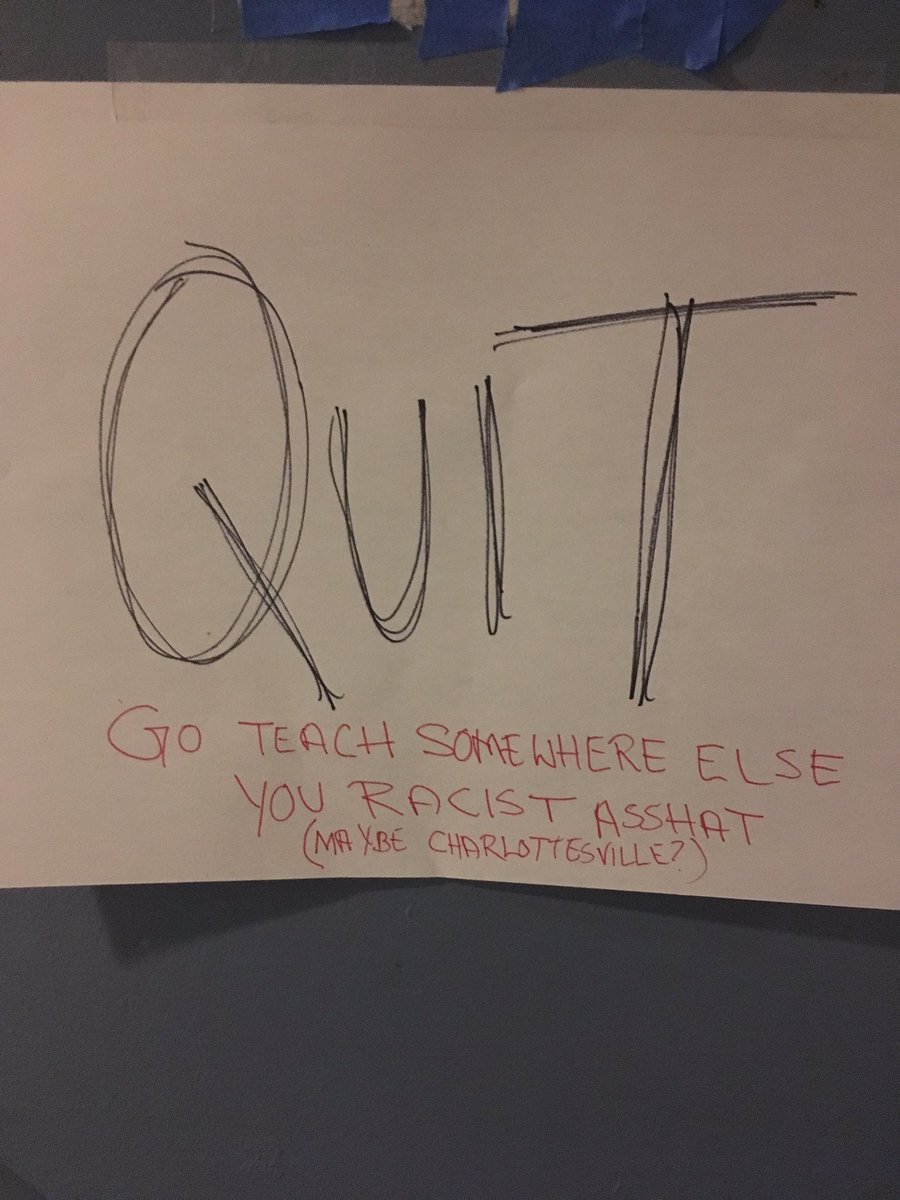 QUIT
GO TEACH SOMEWHERE ELSE
YOU RACIST ASSHAT
(MAYBE CHARLOTTESVILLE?)